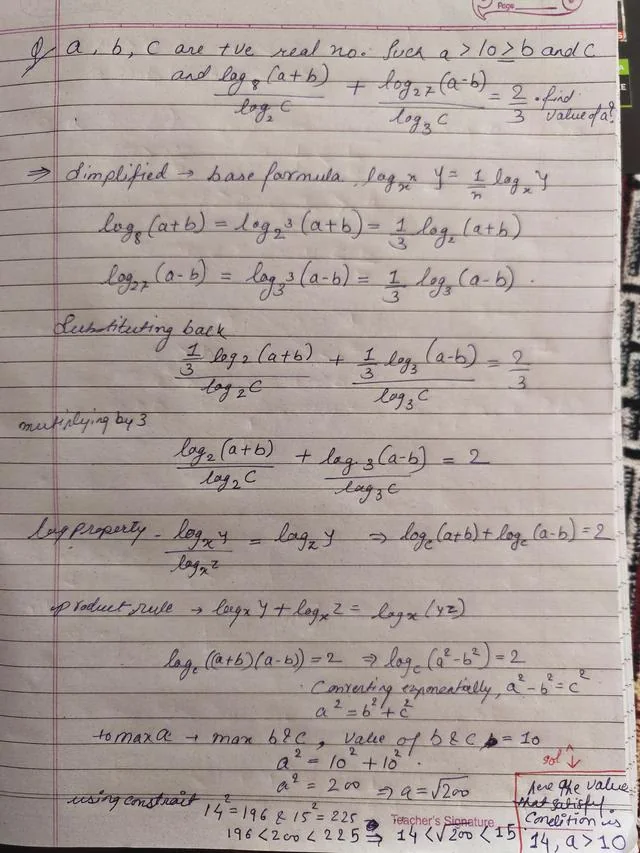 Page
Q/ a, b, c are +ve real no. Such a > 10 ≥ b and c
and log₈(a+b)/log₂c + log₂₇(a-b)/log₃c = 2/3 . find value of a?
⇒ Simplified → base formula. logₓⁿ y = 1/n logₓ y
log₈(a+b) = log₂³(a+b) = 1/3 log₂(a+b)
log₂₇(a-b) = log₃³(a-b) = 1/3 log₃(a-b) .
Substituting back
1/3 log₂(a+b)/log₂c + 1/3 log₃(a-b)/log₃c = 2/3
multiplying by 3
log₂(a+b)/log₂c + log₃(a-b)/log₃c = 2
log property - logₓy/logₓz = log_z y ⇒ log_c(a+b) + log_c(a-b) = 2
product rule → logₓy + logₓz = logₓ(yz)
log_c((a+b)(a-b)) = 2 ⇒ log_c(a²-b²) = 2
Converting exponentially, a² - b² = c²
a² = b² + c²
to max a → max b & c, value of b & c = 10
a² = 10² + 10²
a² = 200 ⇒ a = √200
using constrait 14² = 196 & 15² = 225
196 < 200 < 225 ⇒ 14 < √200 < 15
Teacher's Signature
sol
here the value
that satisfy
Condition is
14, a > 10